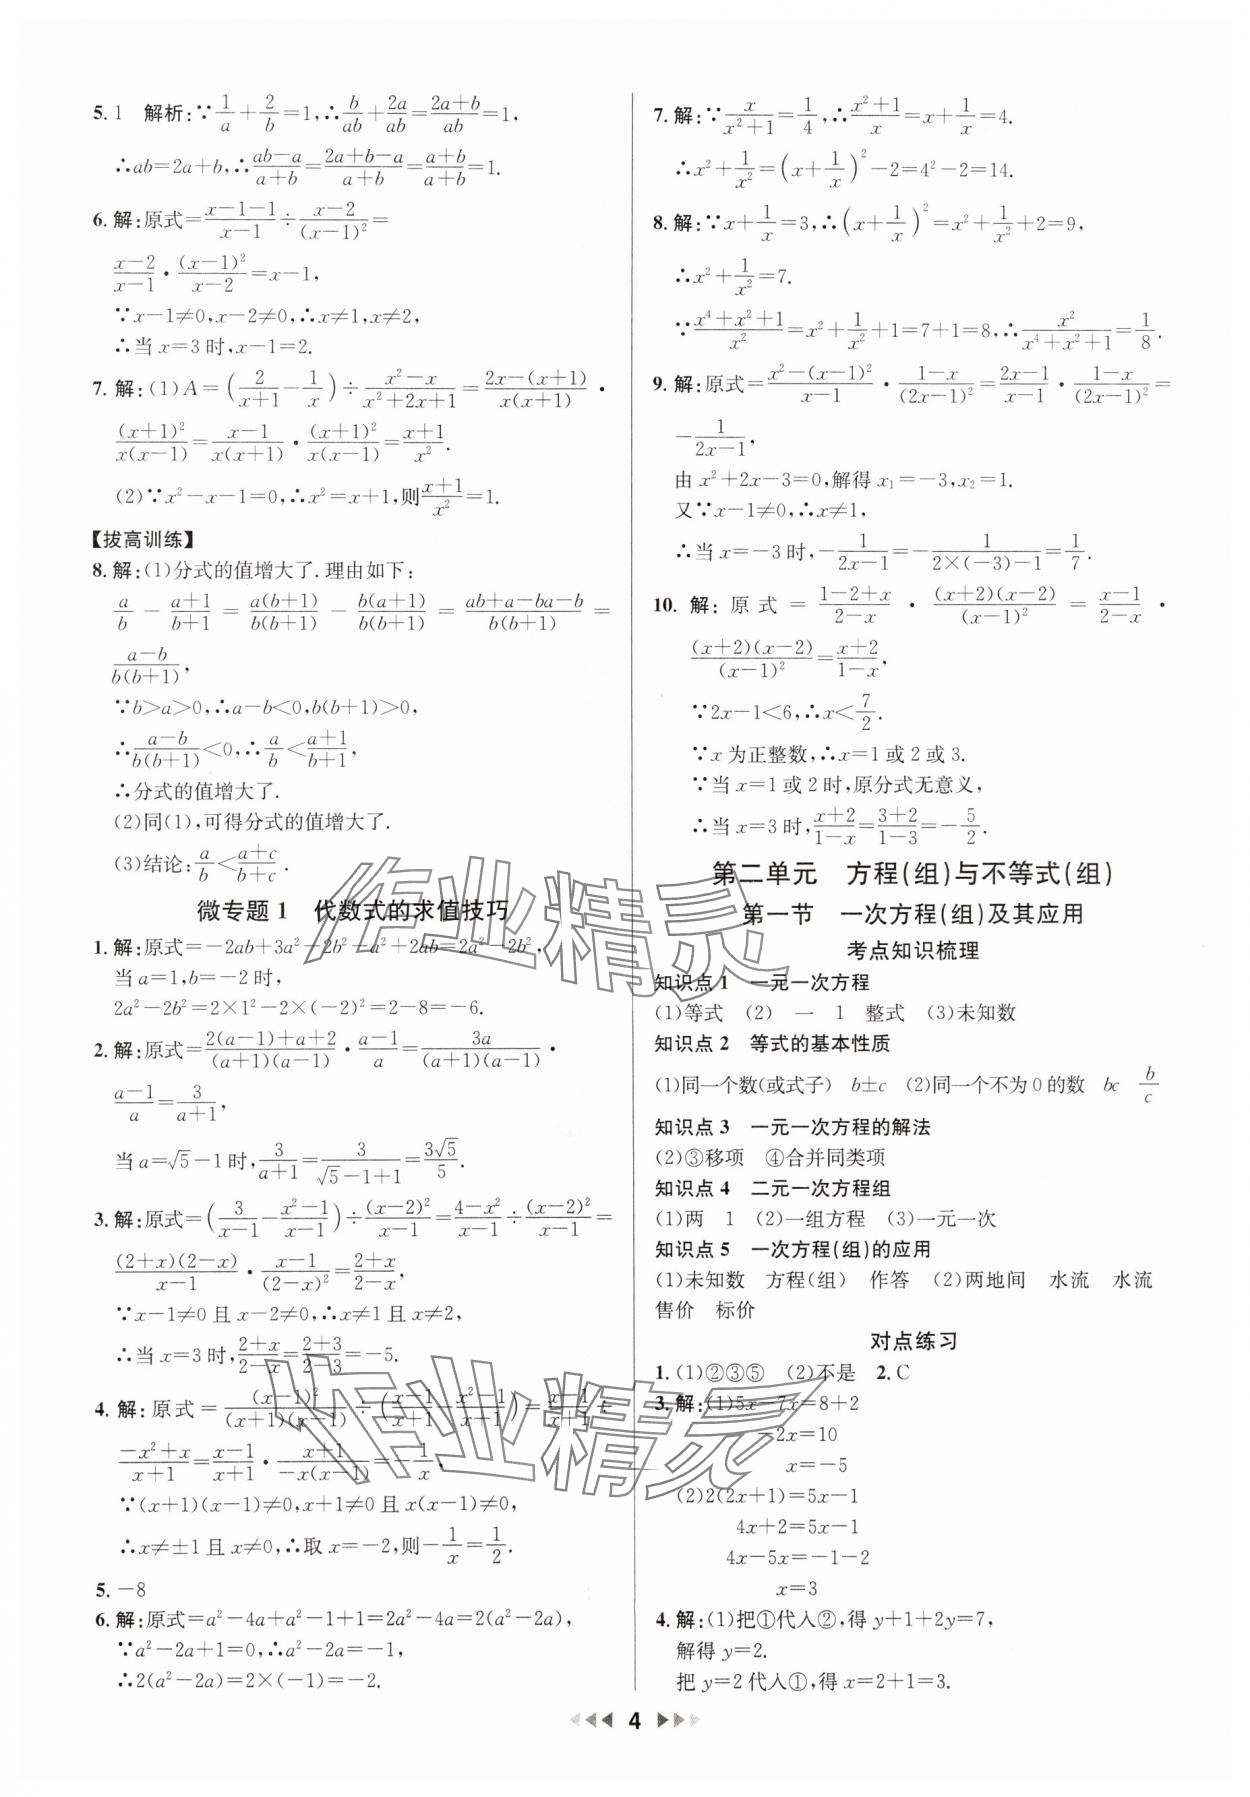 5. 1 解析:∵1/a+2/b=1,∴b/ab+2a/ab=(2a+b)/ab=1,
∴ab=2a+b,∴(ab-a)/(a+b)=(2a+b-a)/(a+b)=(a+b)/(a+b)=1.
6. 解:原式=(x-1-1)/(x-1)÷(x-2)/(x-1)²=
(x-2)/(x-1)·(x-1)²/(x-2)=x-1,
∵x-1≠0,x-2≠0,∴x≠1,x≠2,
∴当 x=3时,x-1=2.
7. 解:(1)A=(2/(x+1)-1/x)÷(x²-x)/(x²+2x+1)=(2x-(x+1))/(x(x+1))·
(x+1)²/(x(x-1))=(x-1)/(x(x+1))·(x+1)²/(x(x-1))=(x+1)/x².
(2)∵x²-x-1=0,∴x²=x+1,则(x+1)/x²=1.
【拔高训练】
8. 解:(1)分式的值增大了.理由如下:
a/b-(a+1)/(b+1)=a(b+1)/(b(b+1))-b(a+1)/(b(b+1))=(ab+a-ba-b)/(b(b+1))=
(a-b)/(b(b+1)),
∵b>a>0,∴a-b<0,b(b+1)>0,
∴(a-b)/(b(b+1))<0,∴a/b<(a+1)/(b+1),
∴分式的值增大了.
(2)同(1),可得分式的值增大了.
(3)结论:a/b<(a+c)/(b+c).
微专题1 代数式的求值技巧
1. 解:原式=-2ab+3a²-2b²-a²+2ab=2a²-2b²,
当 a=1,b=-2时,
2a²-2b²=2×1²-2×(-2)²=2-8=-6.
2. 解:原式=(2(a-1)+a+2)/((a+1)(a-1))·(a-1)/a=3a/((a+1)(a-1))·
(a-1)/a=3/(a+1),
当 a=√5-1时,3/(a+1)=3/(√5-1+1)=3√5/5.
3. 解:原式=(3/(x-1)-(x²-1)/(x-1))÷(x-2)²/(x-1)=(4-x²)/(x-1)÷(x-2)²/(x-1)=
(2+x)(2-x)/(x-1)·(x-1)/(2-x)²=(2+x)/(2-x),
∵x-1≠0且x-2≠0,∴x≠1且x≠2,
∴当 x=3时,(2+x)/(2-x)=(2+3)/(2-3)=-5.
4. 解:原式=(x-1)²/((x+1)(x-1))÷(x-1/(x+1)-(x²-1)/(x+1))=(x-1)/(x+1)÷
(-x²+x)/(x+1)=(x-1)/(x+1)·(x+1)/(-x(x-1))=-1/x.
∵(x+1)(x-1)≠0,x+1≠0且x(x-1)≠0,
∴x≠±1且x≠0,∴取x=-2,则-1/x=1/2.
5. -8
6. 解:原式=a²-4a+a²-1+1=2a²-4a=2(a²-2a),
∵a²-2a+1=0,∴a²-2a=-1,
∴2(a²-2a)=2×(-1)=-2.
7. 解:∵x/(x²+1)=1/4,∴(x²+1)/x=x+1/x=4.
∴x²+1/x²=(x+1/x)²-2=4²-2=14.
8. 解:∵x+1/x=3,∴(x+1/x)²=x²+1/x²+2=9,
∴x²+1/x²=7.
∵(x⁴+x²+1)/x²=x²+1/x²+1=7+1=8,∴x²/(x⁴+x²+1)=1/8.
9. 解:原式=(x²-(x-1)²)/(x-1)·(1-x)/(2x-1)²=(2x-1)/(x-1)·(1-x)/(2x-1)²=
-1/(2x-1),
由 x²+2x-3=0,解得 x₁=-3,x₂=1.
又∵x-1≠0,∴x≠1,
∴当 x=-3时,-1/(2x-1)=-1/(2×(-3)-1)=1/7.
10. 解:原式=(1-2+x)/(2-x)·(x+2)(x-2)/(x-1)²=(x-1)/(2-x)·
(x+2)(x-2)/(x-1)²=(x+2)/(1-x),
∵2x-1<6,∴x<7/2.
∵x为正整数,∴x=1或2或3.
∵当 x=1或2时,原分式无意义,
∴当 x=3时,(x+2)/(1-x)=(3+2)/(1-3)=-5/2.
第二单元 方程(组)与不等式(组)
第一节 一次方程(组)及其应用
考点知识梳理
知识点1 一元一次方程
(1)等式 (2) 一 1 整式 (3)未知数
知识点2 等式的基本性质
(1)同一个数(或式子) b±c (2)同一个不为0的数 bc b/c
知识点3 一元一次方程的解法
(2)③移项 ④合并同类项
知识点4 二元一次方程组
(1)两 1 (2)一组方程 (3)一元一次
知识点5 一次方程(组)的应用
(1)未知数 方程(组) 作答 (2)两地间 水流 水流
售价 标价
对点练习
1. (1)②③⑤ (2)不是 2. C
3. 解:(1)5x-7x=8+2
-2x=10
x=-5
(2)2(2x+1)=5x-1
4x+2=5x-1
4x-5x=-1-2
x=3
4. 解:(1)把①代入②,得 y+1+2y=7,
解得 y=2.
把 y=2代入①,得 x=2+1=3.
4
作业精灵
作业精灵